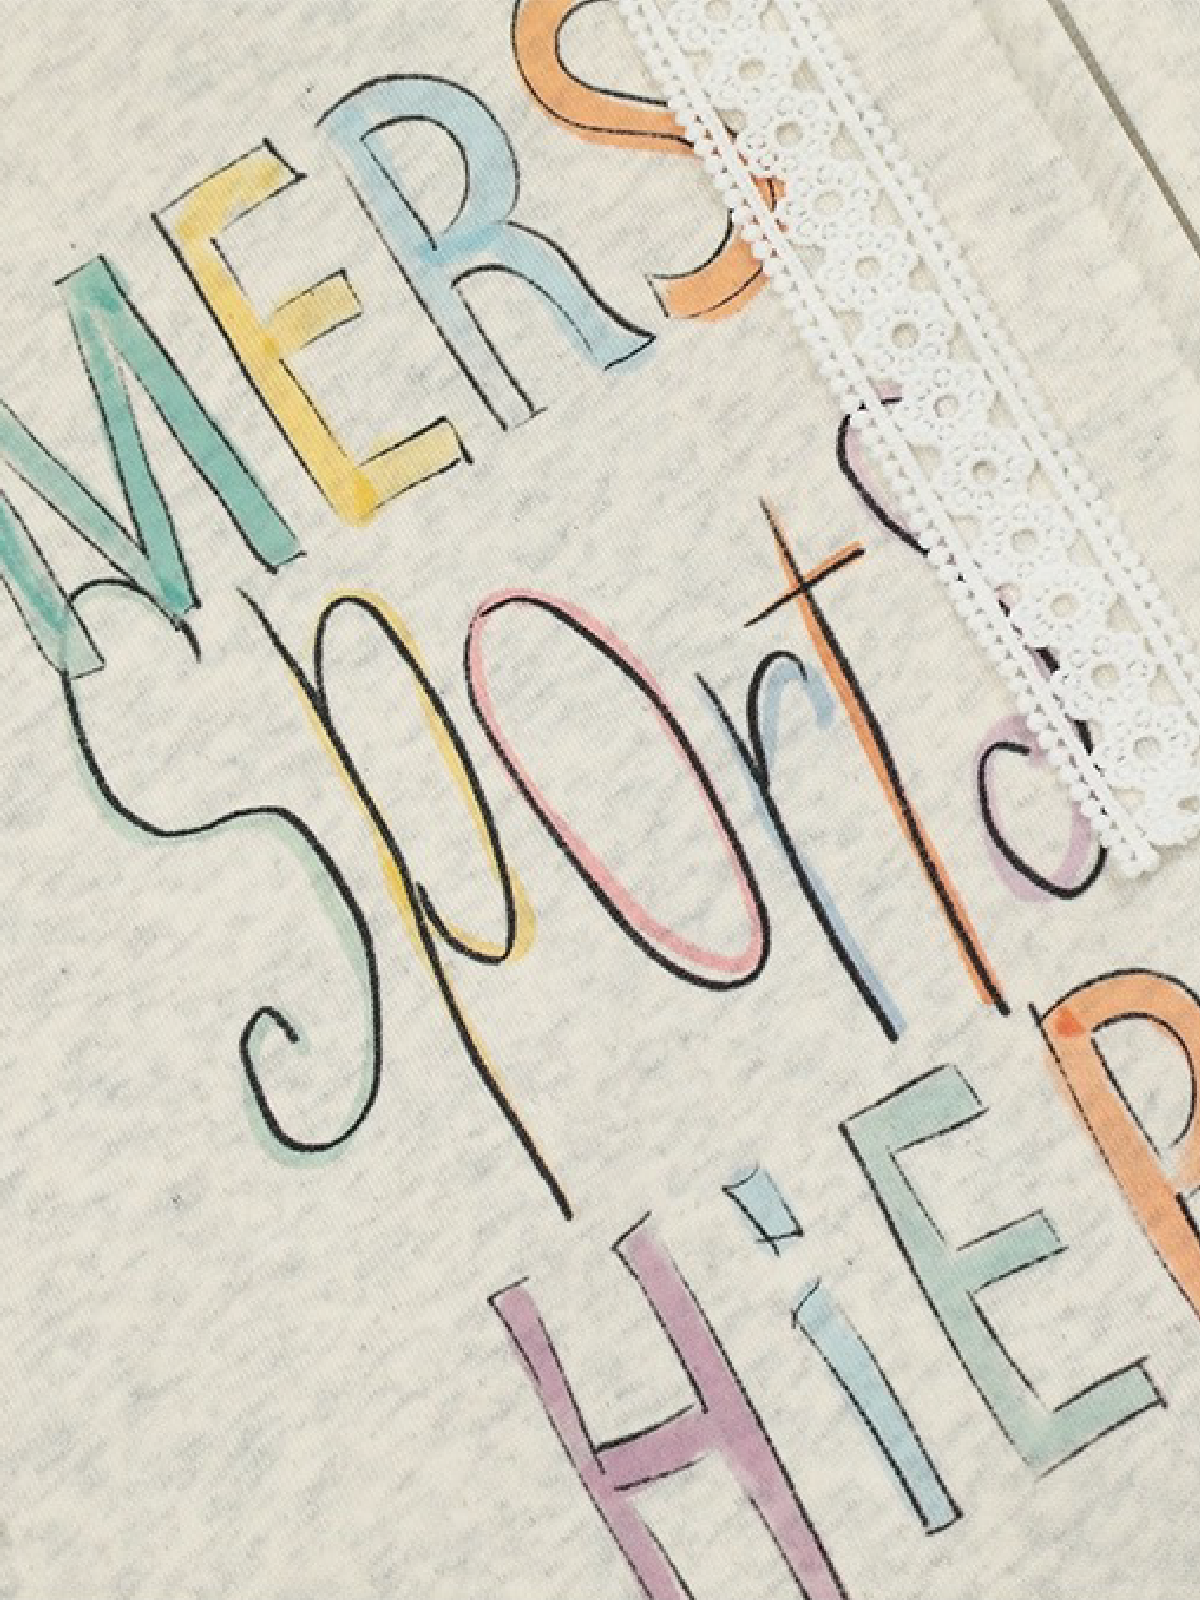 MERS
sport
HiER